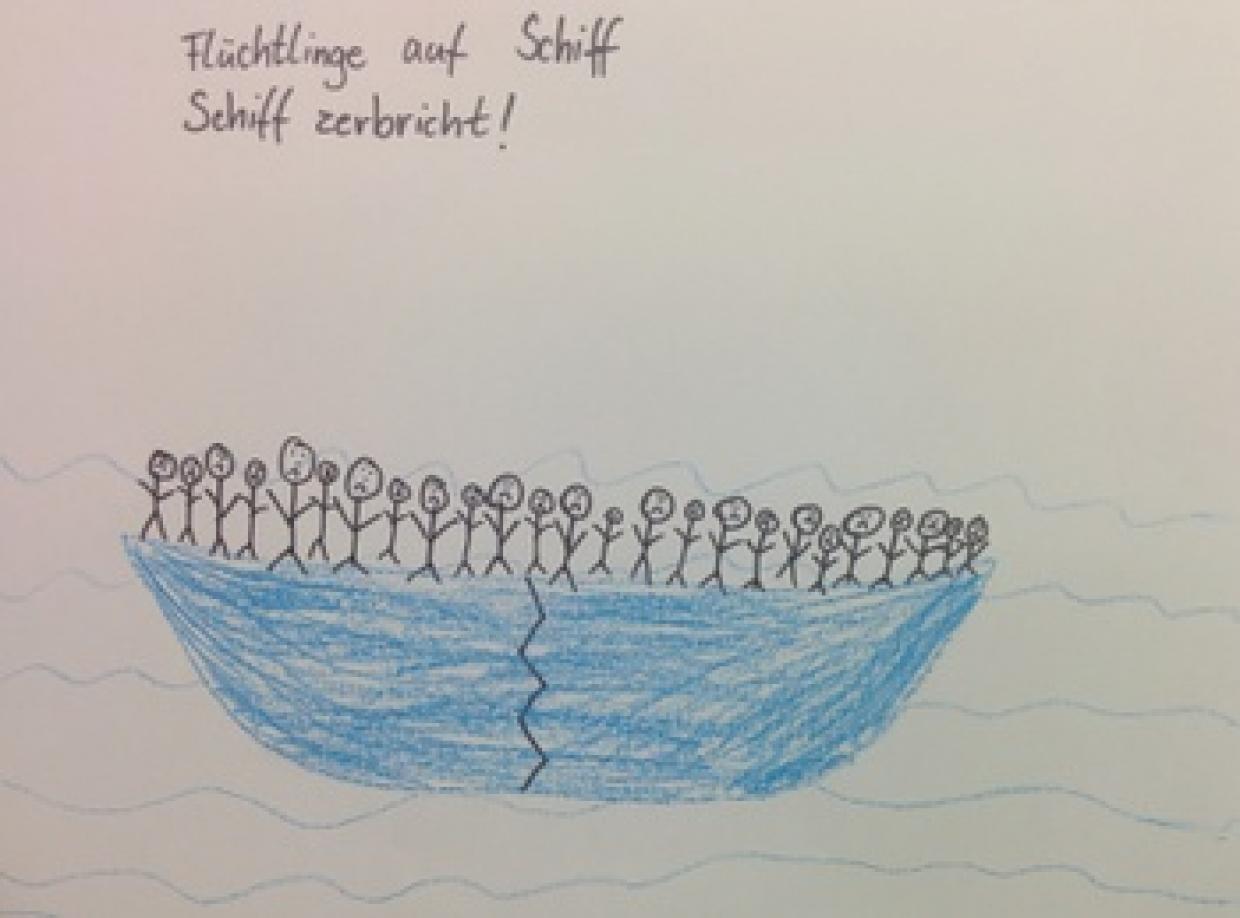 Flüchtlinge auf Schiff
Schiff zerbricht!